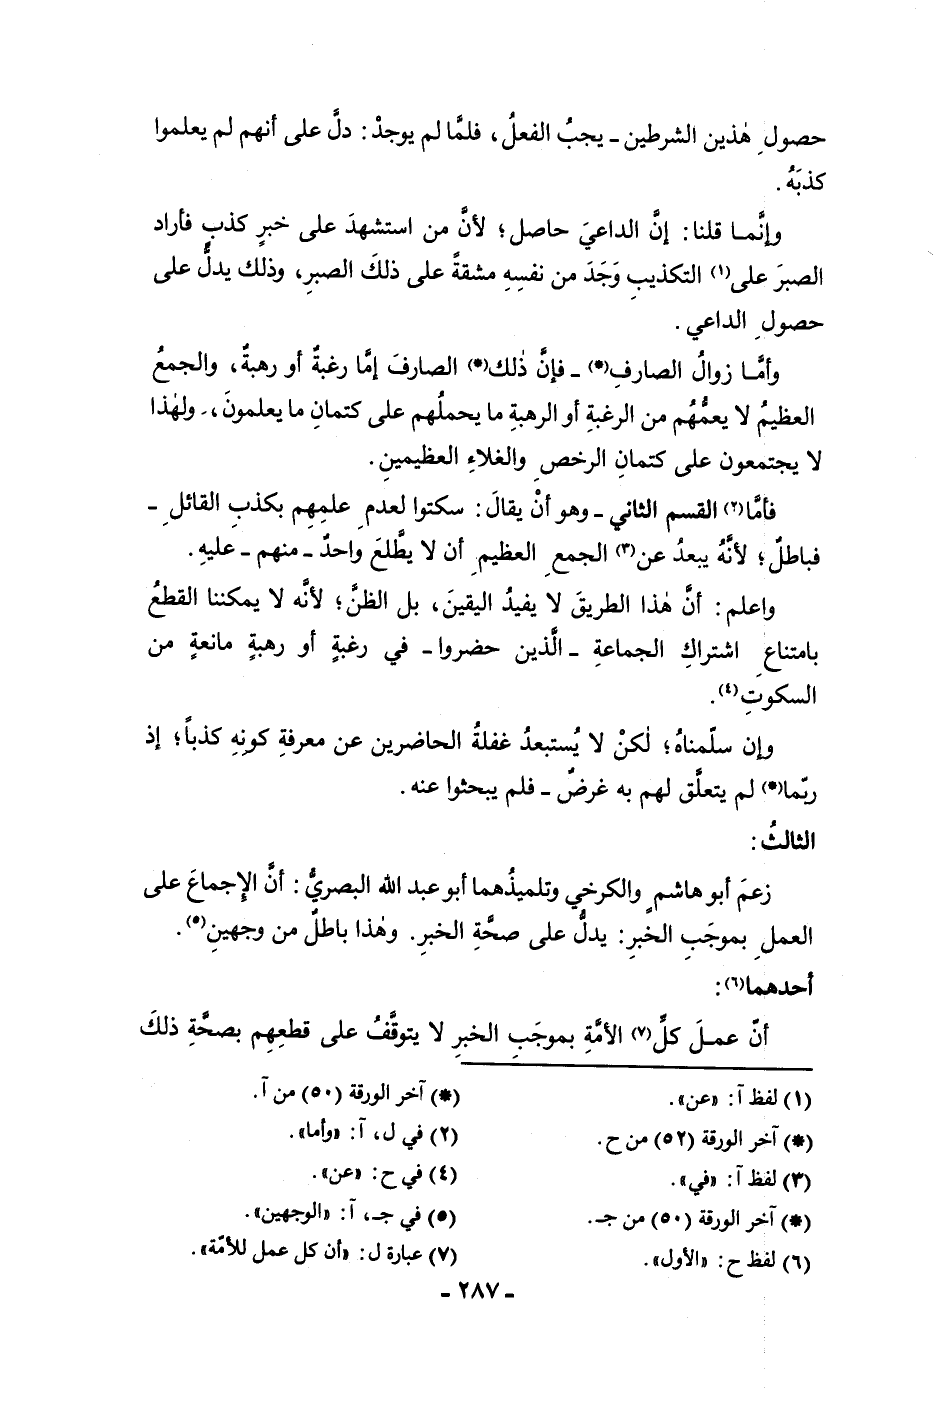 حصولِ هٰذين الشرطين ـ يجبُ الفعلُ، فلمَّا لم يوجدْ: دلَّ على أنهم لم يعلموا
كذبَهُ.
وإنَّما قلنا: إنَّ الداعيَ حاصل؛ لأنَّ من استشهدَ على خبرٍ كذبٍ فأراد
الصبرَ على(١) التكذيبِ وَجَدَ من نفسِهِ مشقةً على ذلكَ الصبرِ، وذلك يدلُّ على
حصولِ الداعي.
وأمَّا زوالُ الصارفِ(*) ـ فإنَّ ذٰلك(*) الصارفَ إمَّا رغبةٌ أو رهبةٌ، والجمعُ
العظيمُ لا يعمُّهُم من الرغبةِ أو الرهبةِ ما يحملُهم على كتمانِ ما يعلمونَ، ولهٰذا
لا يجتمعون على كتمانِ الرخصِ والغلاءِ العظيمينِ.
فأمَّا(٢) القسم الثاني ـ وهو أنْ يقالَ: سكتوا لعدمِ علمِهِم بكذبِ القائلِ ـ
فباطلٌ؛ لأنَّهُ يبعدُ عن(٣) الجمعِ العظيمِ أن لا يطَّلعَ واحدٌ ـ منهم ـ عليهِ.
واعلم: أنَّ هٰذا الطريقَ لا يفيدُ اليقينَ، بل الظنَّ؛ لأنَّه لا يمكننا القطعُ
بامتناعِ اشتراكِ الجماعةِ ـ الَّذين حضروا ـ في رغبةٍ أو رهبةٍ مانعةٍ من
السكوتِ(٤).
وإن سلّمناهُ؛ لٰكنْ لا يُستبعدُ غفلةُ الحاضرين عن معرفةِ كونِهِ كذباً؛ إذ
ربّما(*) لم يتعلَّق لهم به غرضٌ ـ فلم يبحثوا عنه.
الثالثُ:
زعمَ أبو هاشمٍ والكرخي وتلميذُهما أبو عبد الله البصريُّ: أنَّ الإِجماعَ على
العملِ بموجَبِ الخبرِ: يدلُّ على صحَّةِ الخبرِ. وهٰذا باطلٌ من وجهينِ(٥).
أحدهما(٦):
أنّ عمـلَ كلِّ(٧) الأمَّةِ بموجَبِ الخبرِ لا يتوقَّفُ على قطعِهِم بصحَّةِ ذلكَ
(١) لفظ آ: «عن».
(*) آخر الورقة (٥٠) من آ.
(*) آخر الورقة (٥٢) من ح.
(٢) في ل، آ: «وأما».
(٣) لفظ آ: «في».
(٤) في ح: «عن».
(*) آخر الورقة (٥٠) من جـ.
(٥) في جـ، آ: «الوجهين».
(٦) لفظ ح: «الأول».
(٧) عبارة ل: «أن كل عمل للأمّة».
ـ ٢٨٧ ـ